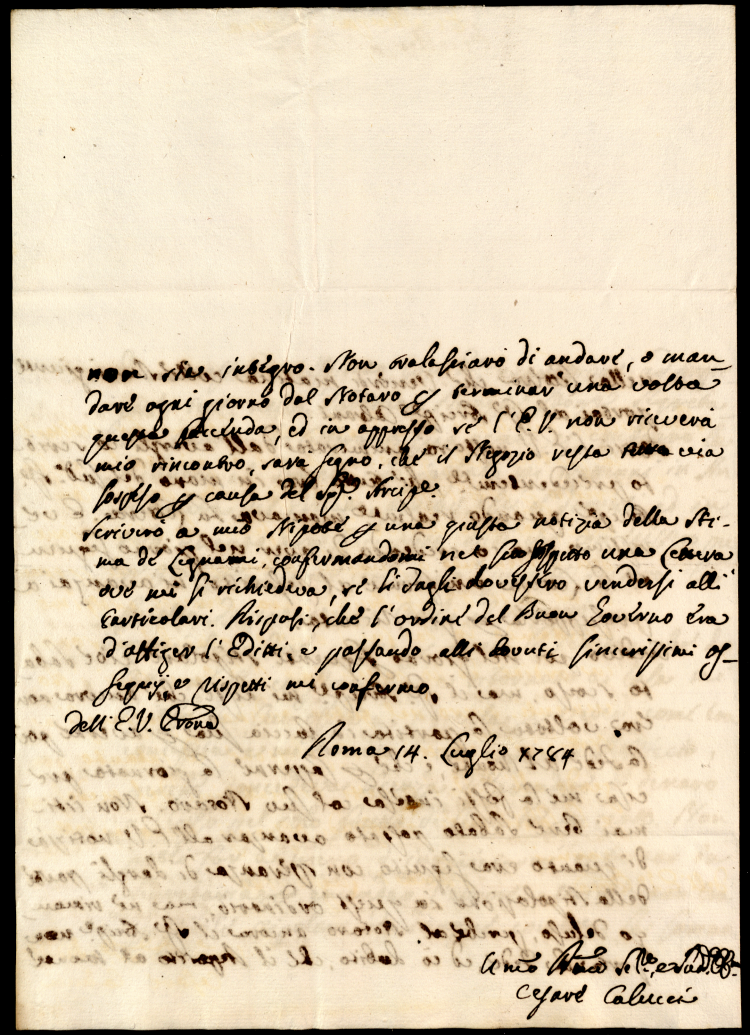 non sia integro. Non tralasciarò di andare, o man-
dare ogni giorno dal Notaro p terminar una volta
questa faccenda, ed in appresso se l'E.V. non riceverà
mio rincontro, sarà segno, che il Negozio resta tuttavia
sospeso p causa del
Scriverò a mio Nipote p una giusta notizia della Sti-
ma de Legnami, confermandomi nel una Lettera
ove mi si richiedeva, se li dagli dovessero vendersi alli
Particolari. Risposi, che l'ordine del Buon Governo era
d'affiger l'Editti, e passando alli dovuti sincerissimi os-
sequij e rispetti mi confermo
dell'E.V. Prona
Roma 14. Luglio 1784
Umo
Cesare Colucci